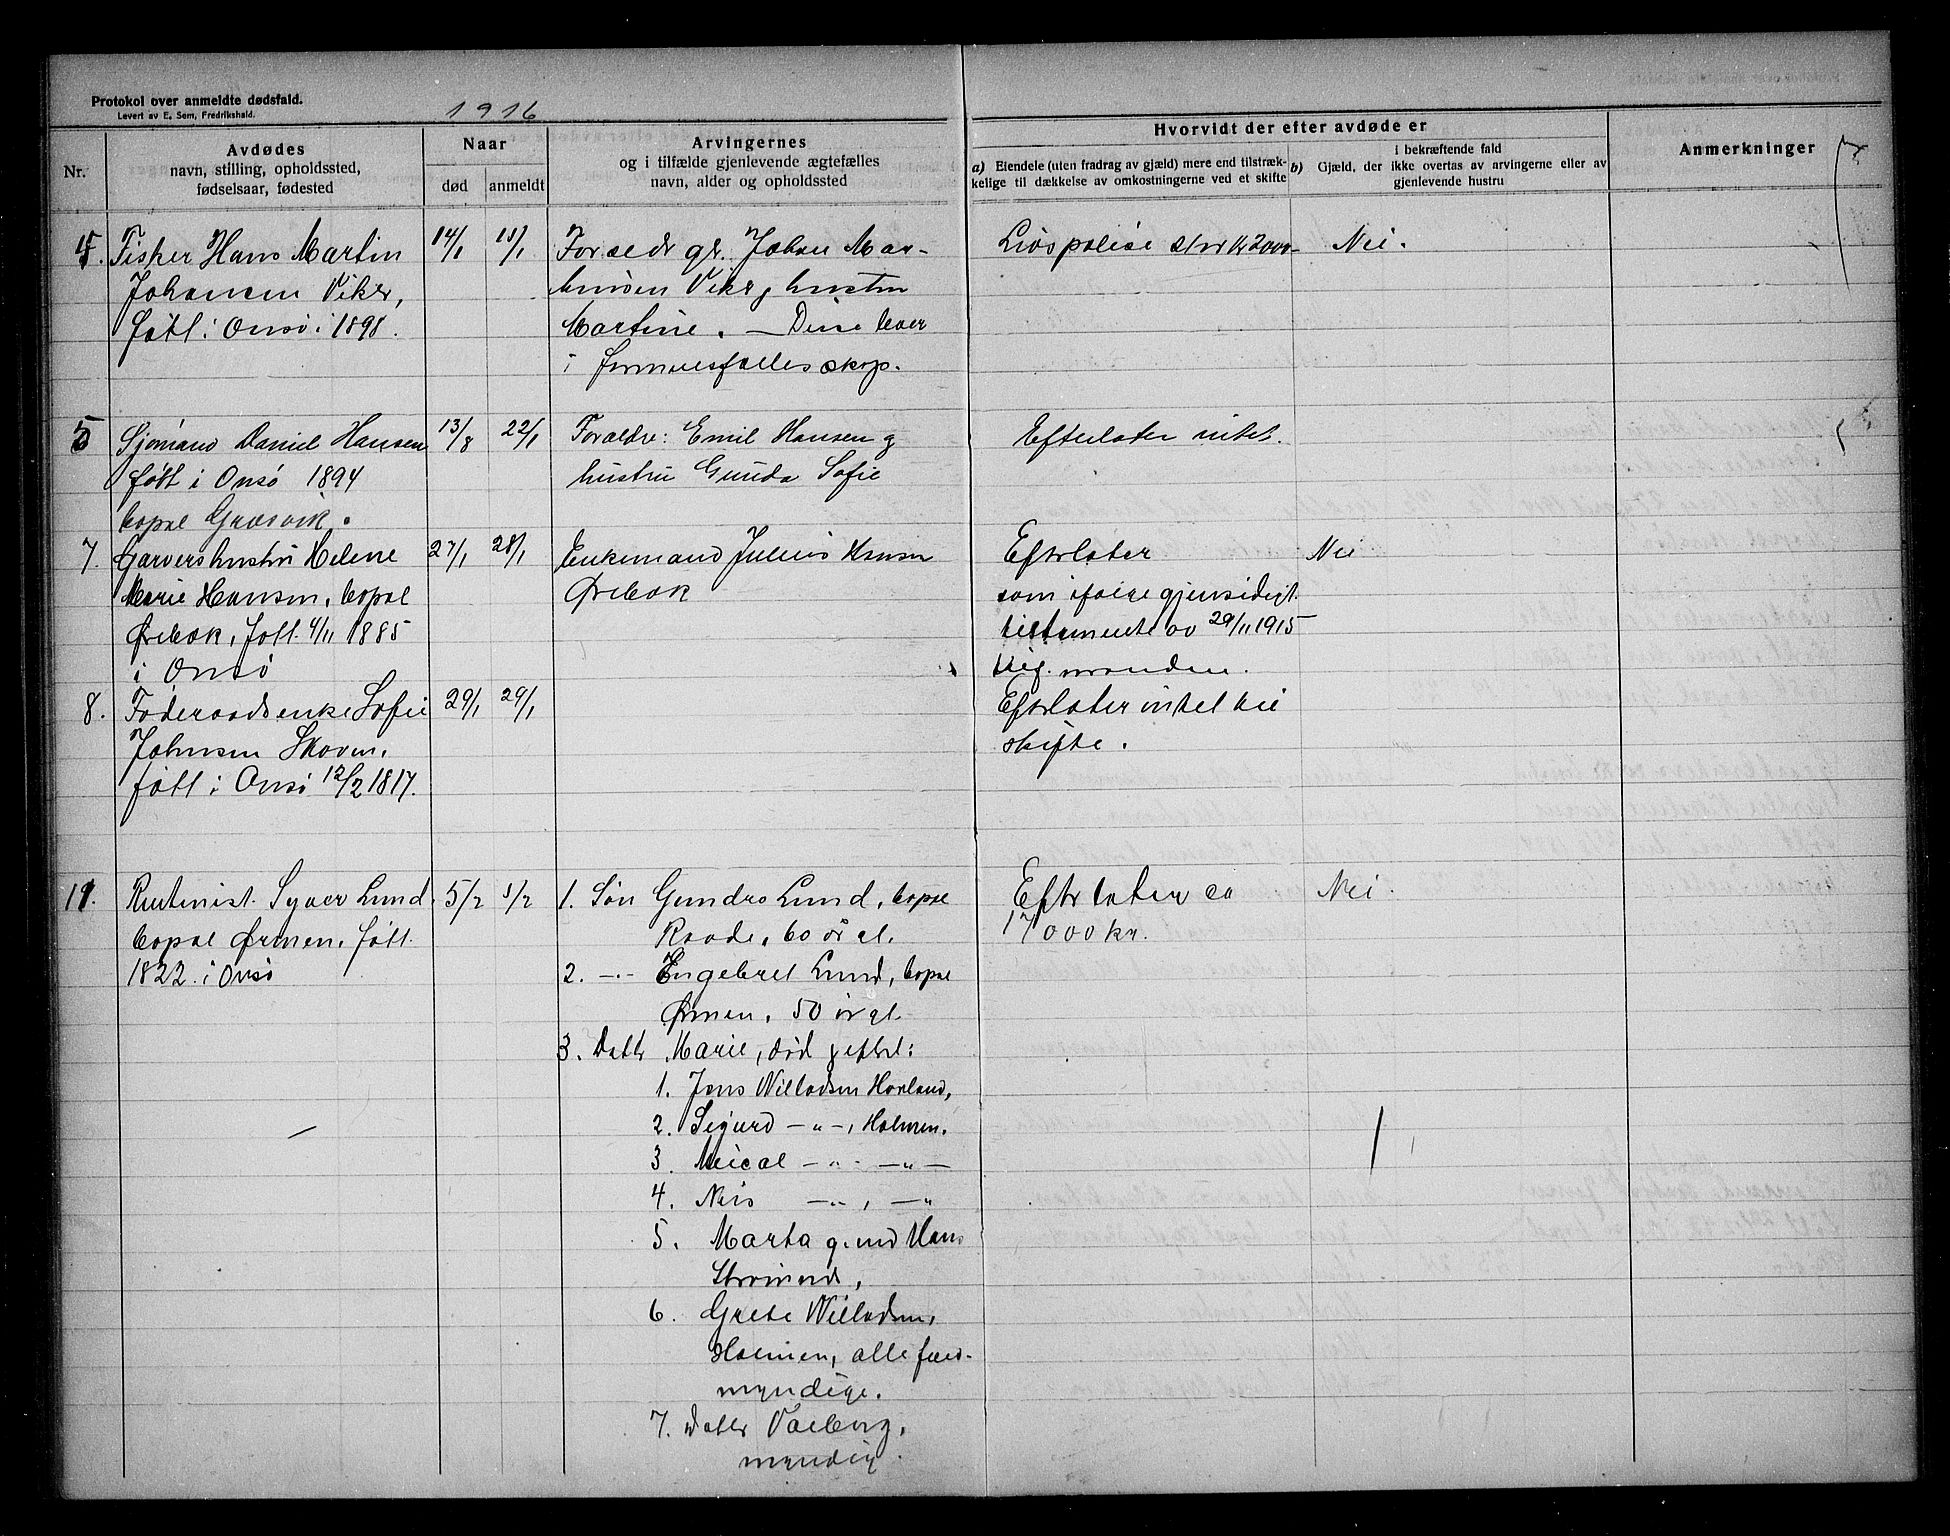 Protokol over anmeldte dødsfald.
Levert av E. Sem, Fredrikshald.
1916
Nr.
Avdødes
navn, stilling, opholdssted,
fødselsaar, fødested
Naar
død
anmeldt
Arvingernes
og i tilfælde gjenlevende ægtefælles
navn, alder og opholdssted
Hvorvidt der efter avdøde er
a) Eiendele (uten fradrag av gjæld) mere end tilstræk-
kelige til dækkelse av omkostningerne ved et skifte
b) Gjæld, der i bekræftende fald
ikke overtas av arvingerne eller av
gjenlevende hustru
Anmerkninger
Fisker Hans Martin
Johansen Viker,
født i Onsø i 1898.
14/1
15/1
Foræedr gr. Johan Mar-
Viker g hustru
Martine. — Disse lever
i formuesfællesskap.
Livspolise stor kr 2000-
Nei.
Sjømand Daniel Hansen
født i Onsø 1894
bopæl Græsvik.
13/8
22/1
Forældre: Emil Hansen g
hustru Gunda Sofie
Efterlater intet.
7.
Garverhustru Helene
Marie Hansen, bopæl
Ørebæk, født 4/11 1885
i Onsø
27/1
28/1
Enkemand Julius Hansen
Ørebæk
Efterlater
som ifølge gjensidigt
testamente av 29/11 1915
manden.
Nei
8.
Føderaadsenke Sofie
Johnsen Skoven,
født i Onsø 12/2 1817.
29/1
29/1
Efterlater intet til
skifte.
11.
Rentenist. Syver Lund
bopæl Ørmen, født
1822. i Onsø
5/2
5/2
1. Søn Gundro Lund, bopæl
Raade, 60 år gl.
2. —"— Engebret Lund, bopæl
Ørmen, 50 år gl.
3. Datter Marie, død g efterl:
1. Jens Willadsen Horland,
2. Sigurd —"—, Holmen.
3. Meical —"— —"—
4. Nils —"—, —"—
5. Marta g. med Hans
6. Grete Willadsen,
Holmen, alle fuld-
myndige.
7. Datter Valborg,
myndig.
Efterlater ca
17000 kr.
Nei.